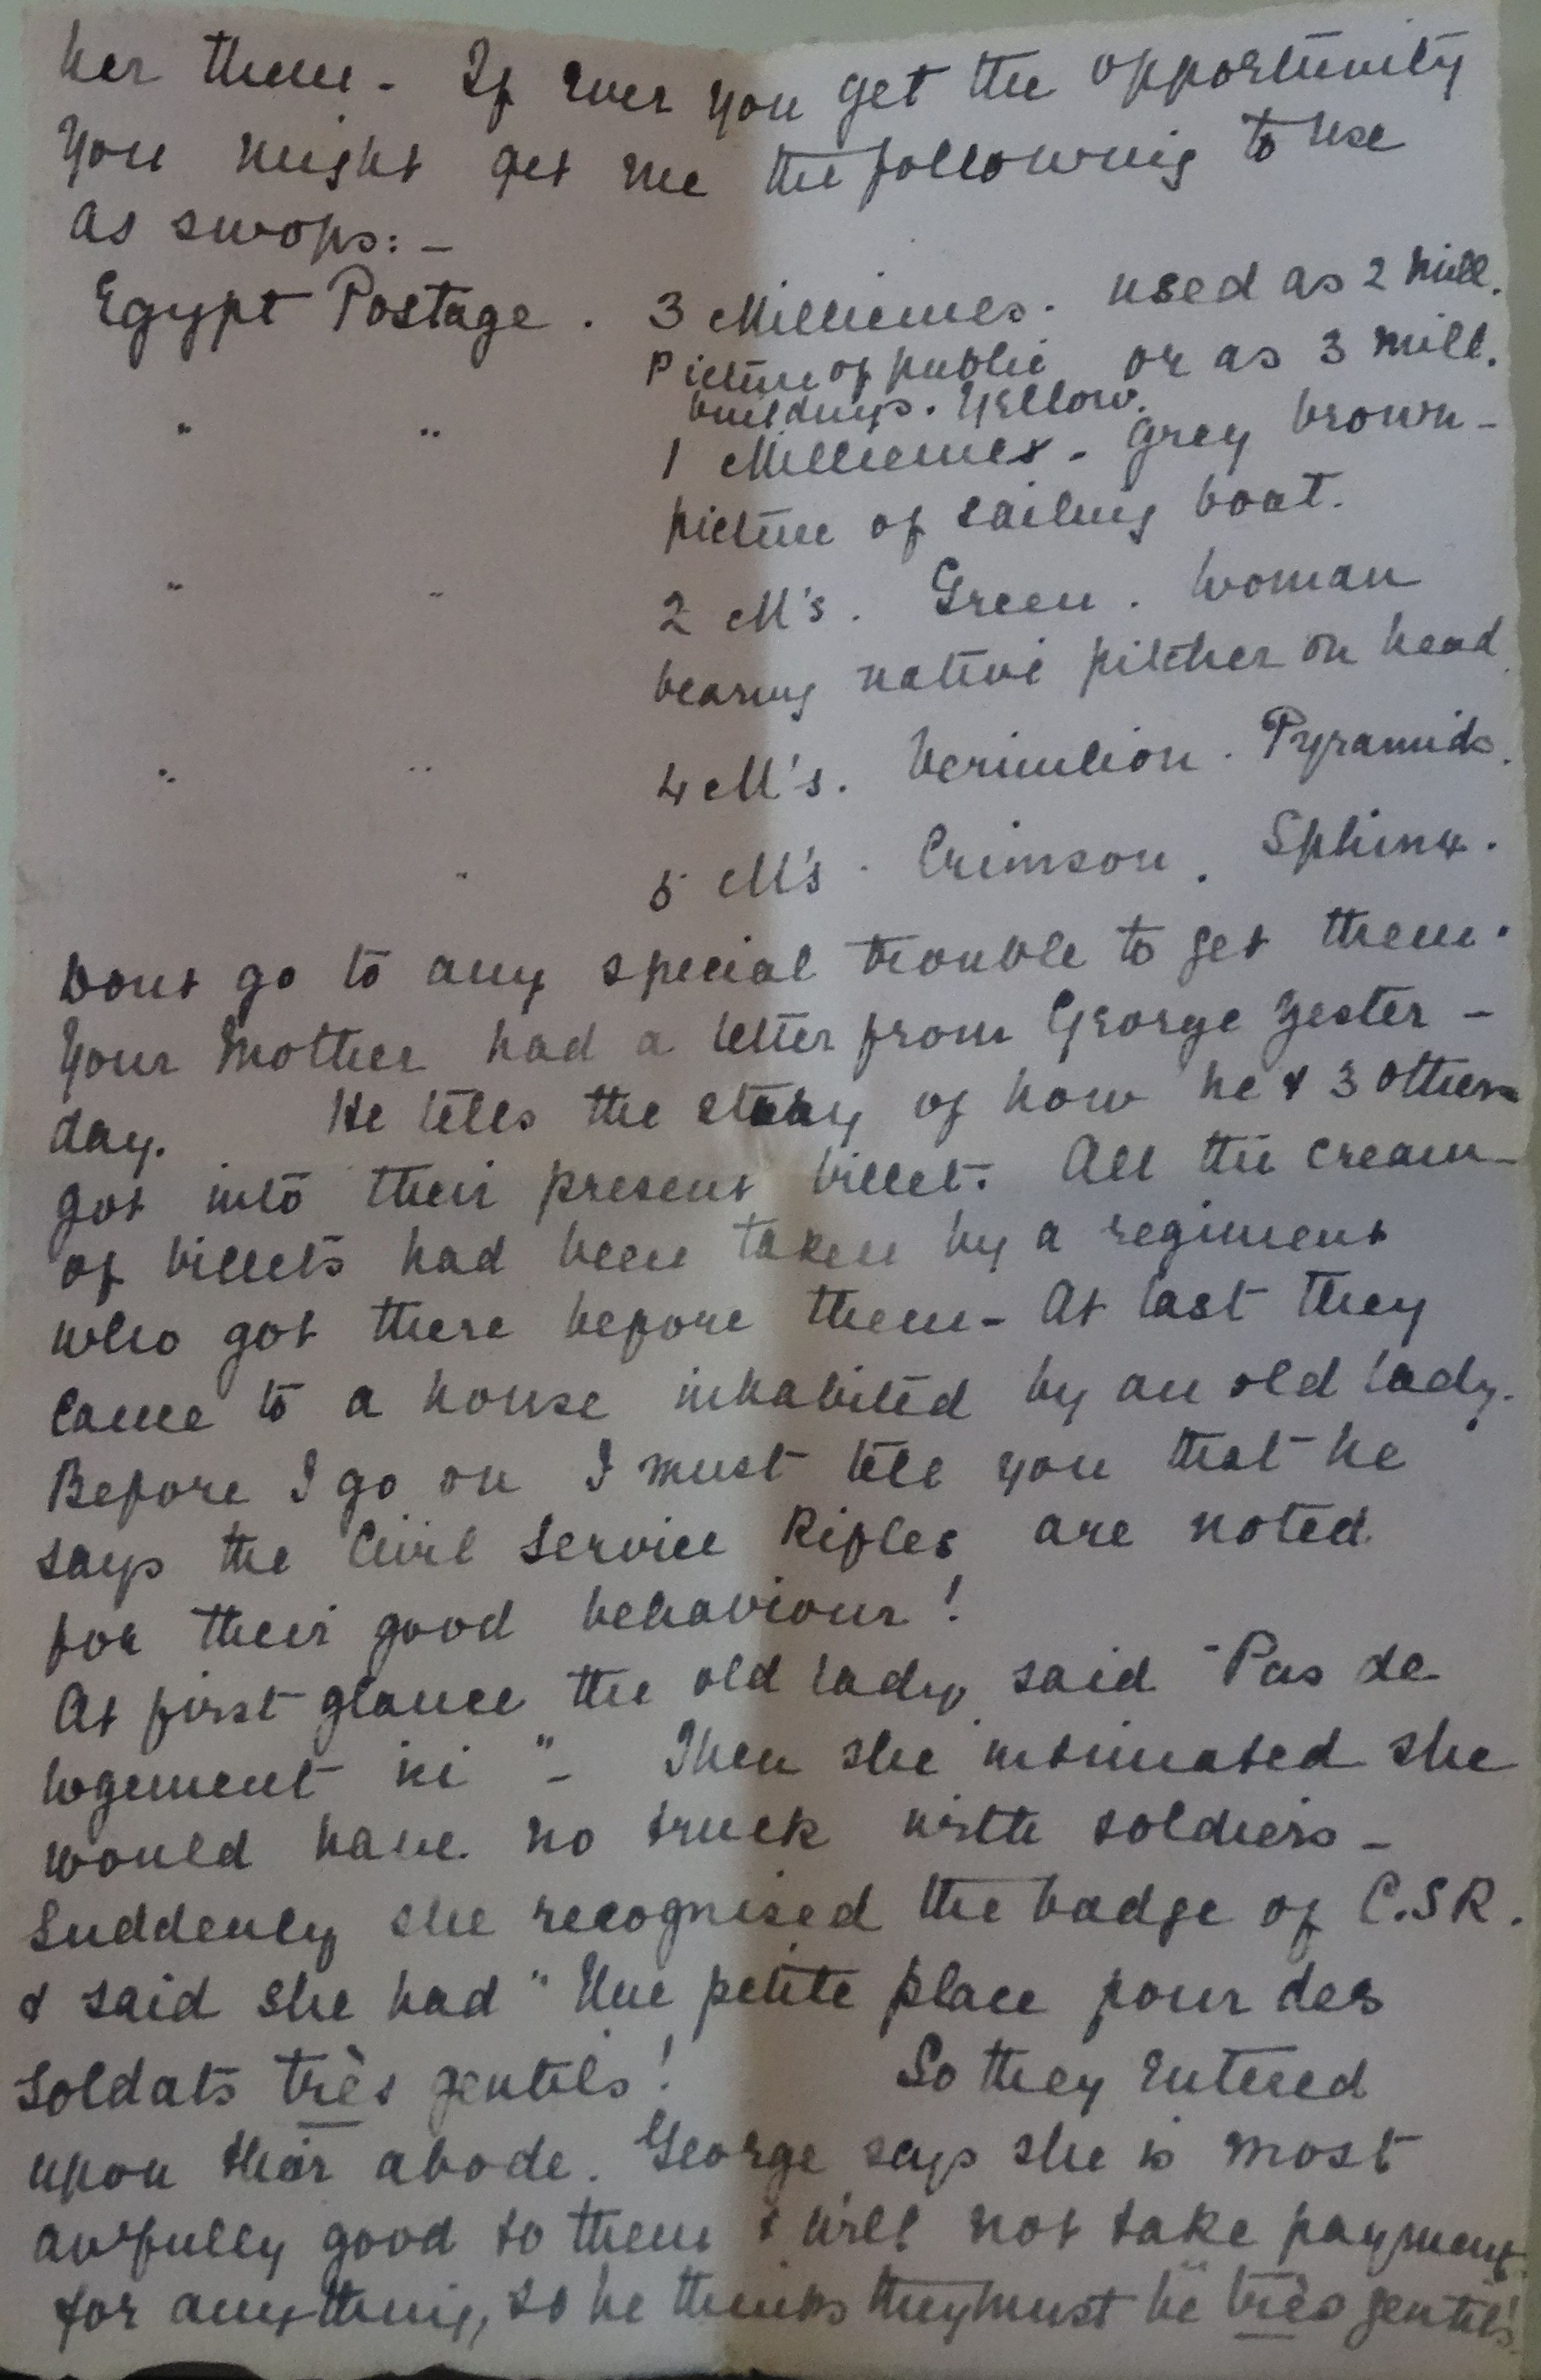 her them - If ever you get the opportunity
you might get me the following to use
as swops: -
Egypt Postage . 3 Milliemes . used as 2 mill.
Picture of public or as 3 mill.
buildings. Yellow.
" " 1 Milliemes - Grey brown -
picture of sailing boat.
" " 2 M's . Green . Woman
bearing native pitcher on head.
" " 4 M's . Vermilion . Pyramids.
" 5 M's . Crimson . Sphinx .
Dont go to any special trouble to get them .
Your Mother had a letter from George yester -
day. He tells the story of how he & 3 others
got into their present billet. All the cream
of billets had been taken by a regiment
who got there before them - At last they
came to a house inhabited by an old lady.
Before I go on I must tell you that he
says the Civil Service Rifles are noted
for their good behaviour !
At first glance the old lady said "Pas de
logement ici " - Then she intimated she
would have no truck with soldiers -
Suddenly she recognised the badge of C.S.R.
& said she had " Une petite place pour des
soldats très gentils ! So they entered
upon their abode. George says she is most
awfully good to them & will not take payment
for anything, so he thinks they must be "très gentils"!